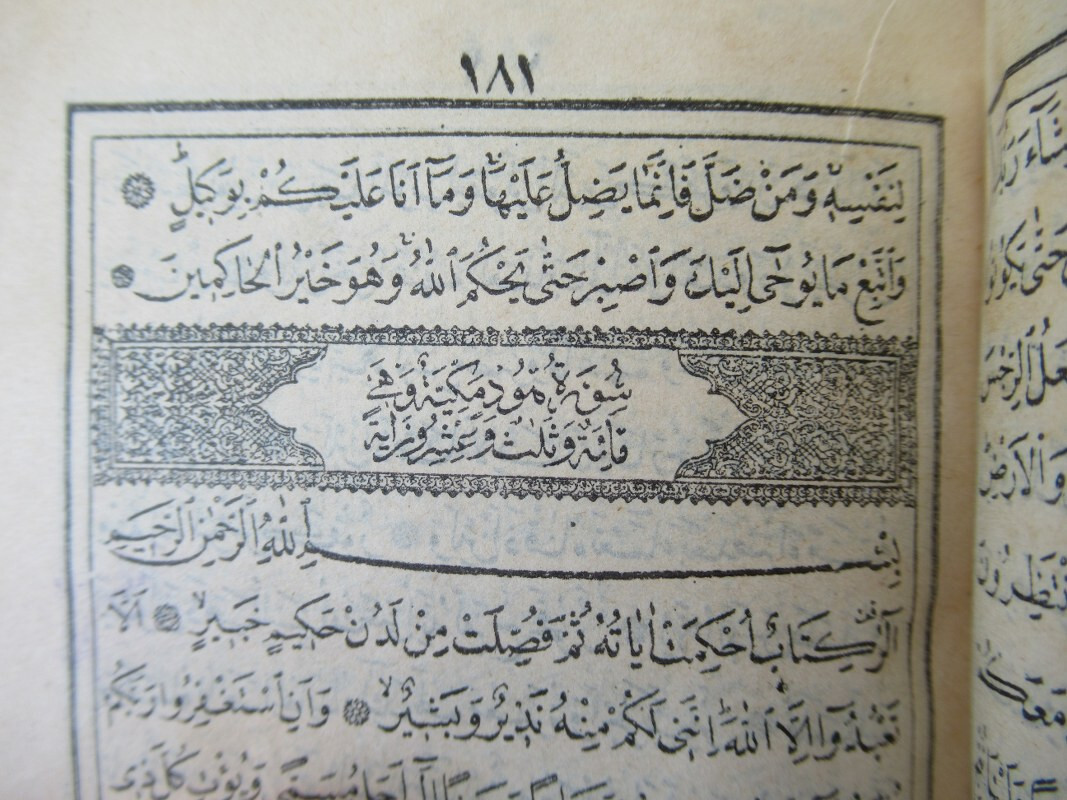 ١٨١
لِنَفْسِهٖ وَمَنْ ضَلَّ فَاِنَّمَا يَضِلُّ عَلَيْهَا وَمَٓا اَنَا عَلَيْكُمْ بِوَكٖيلٍ
وَاتَّبِعْ مَا يُوحٰٓى اِلَيْكَ وَاصْبِرْ حَتّٰى يَحْكُمَ اللّٰهُ وَهُوَ خَيْرُ الْحَاكِمٖينَ
سُورَةُ هُودٍ مَكِّيَّةٌ وَهِيَ
مِائَةٌ وَثَلٰثٌ وَعِشْرُونَ اٰيَةً
بِسْمِ اللّٰهِ الرَّحْمٰنِ الرَّحٖيمِ
الٓرٰ كِتَابٌ اُحْكِمَتْ اٰيَاتُهُ ثُمَّ فُصِّلَتْ مِنْ لَدُنْ حَكٖيمٍ خَبٖيرٍ اَلَّا
تَعْبُدُٓوا اِلَّا اللّٰهَ اِنَّنٖى لَكُمْ مِنْهُ نَذٖيرٌ وَبَشٖيرٌ وَاَنِ اسْتَغْفِرُوا رَبَّكُمْ
اِلٰٓى اَجَلٍ مُسَمًّى وَيُؤْتِ كُلَّ ذٖى
حَتّٰى يَكُونُوا
الرِّجْسَ
وَالْاَرْضِ
مَعَكُمْ